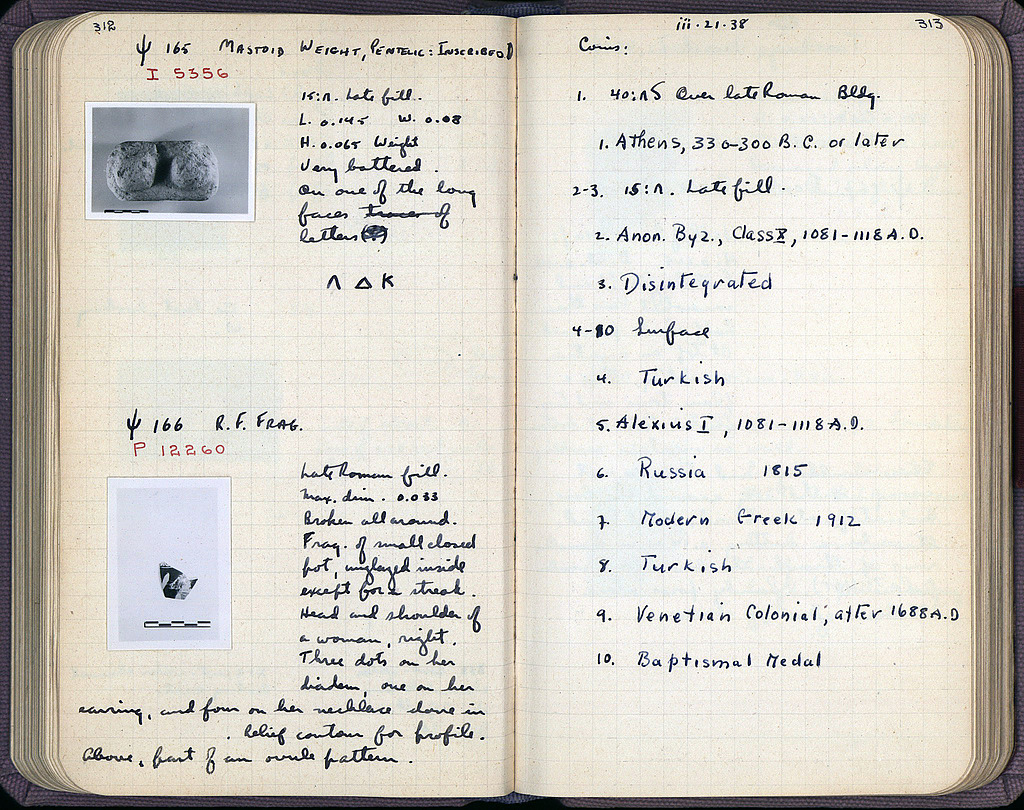 312
Ψ 165 MASTOID WEIGHT, PENTELIC: INSCRIBED
I 5356
15:Λ. Late fill.
L. 0.145 W. 0.08
H. 0.065 Weight
Very battered.
On one of the long
faces traces of
letters (?)
Λ Δ Κ
Ψ 166 R.F. FRAG.
P 12260
Late Roman fill.
Max. dim. 0.033
Broken all around.
Frag. of small closed
pot, unglazed inside
except for a streak.
Head and shoulder of
a woman, right.
Three dots on her
diadem, one on her
earring, and four on her necklace done in
relief contour for profile.
Above, part of an ovule pattern.
iii.21.38
313
Coins:
1. 40:ΛS Over late Roman Bldg.
1. Athens, 330-300 B.C. or later
2-3. 15:Λ. Late fill.
2. Anon. Byz., Class X, 1081-1118 A.D.
3. Disintegrated
4-10 Surface
4. Turkish
5. Alexius I, 1081-1118 A.D.
6. Russia 1815
7. Modern Greek 1912
8. Turkish
9. Venetian Colonial, after 1688 A.D
10. Baptismal Medal